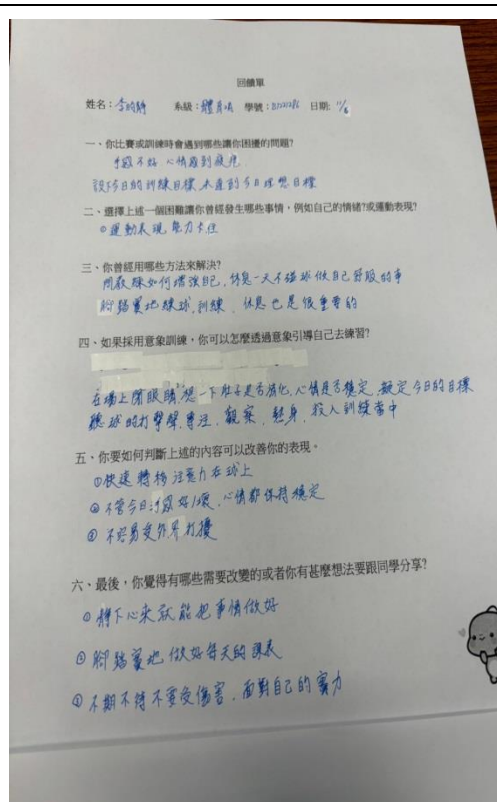 回饋單
姓名：李昀靜 系級：體育四 學號： 日期：11/6
一、你比賽或訓練時會遇到哪些讓你困擾的問題?
手感不好 心情感到疲憊
設下今日的訓練目標,未達到今日理想目標
二、選擇上述一個困難讓你曾經發生哪些事情，例如自己的情緒?或運動表現?
①運動表現 能力卡住
三、你曾經用哪些方法來解決?
問教練如何增強自己,休息一天不碰球做自己舒服的事
腳踏實地練球,訓練、休息也是很重要的
四、如果採用意象訓練，你可以怎麼透過意象引導自己去練習?
在場上閉眼睛想一下肚子是否消化,心情是否穩定,設定今日的目標
聽球的打擊聲,專注、觀察、熱身、投入訓練當中
五、你要如何判斷上述的內容可以改善你的表現。
①快速轉移注意力在球上
②不管今日手感好/壞,心情都保持穩定
③不容易受外界打擾
六、最後，你覺得有哪些需要改變的或者你有甚麼想法要跟同學分享?
①靜下心來就能把事情做好
②腳踏實地做好每天的課表
③不期不待不要受傷害、面對自己的實力